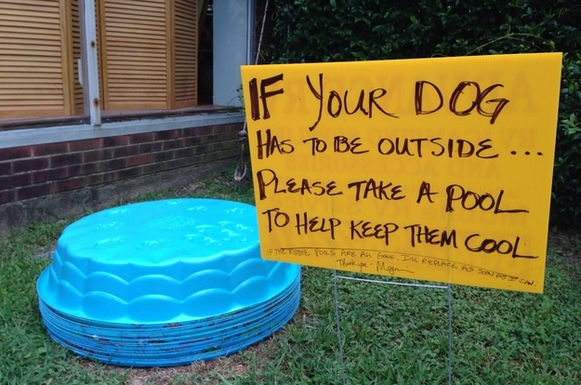 IF YOUR DOG
HAS TO BE OUTSIDE...
PLEASE TAKE A POOL
TO HELP KEEP THEM COOL
IF THE KIDDIE POOLS ARE ALL GONE, I'LL REPLACE AS SOON AS I CAN.
Thank you - Megan